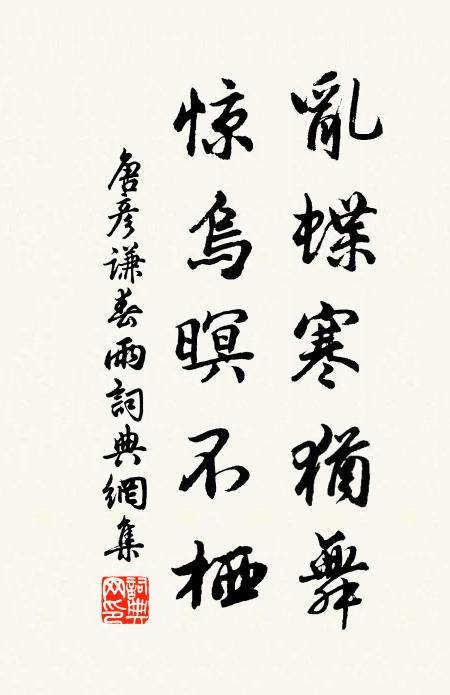 亂蝶寒猶舞
惊烏暝不栖
唐彥謙春雨詞典網集
詞典網印